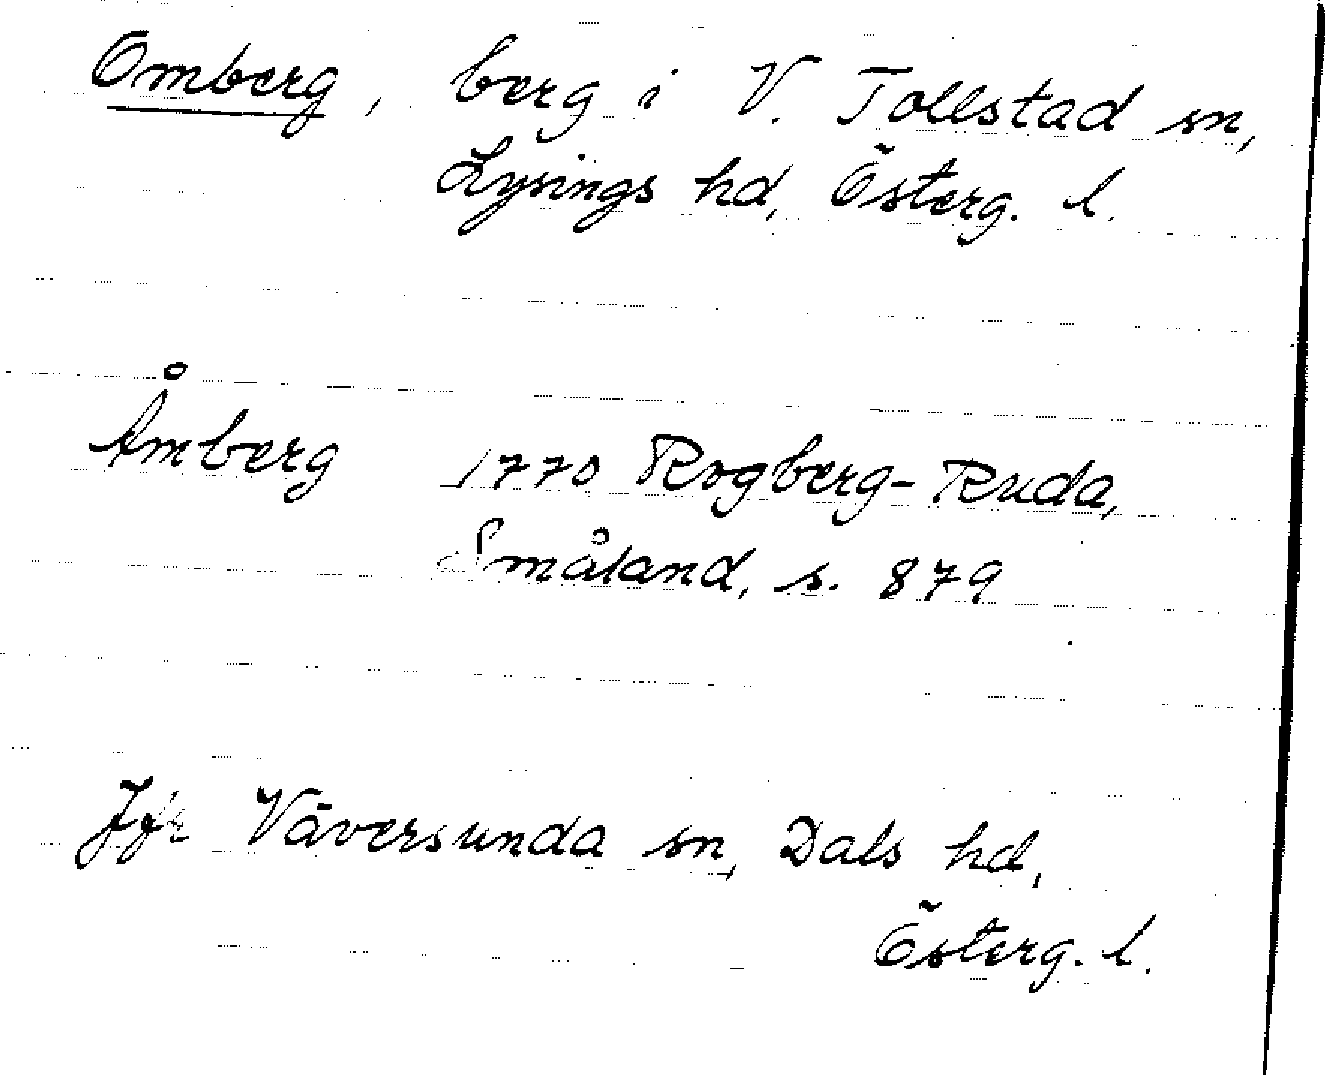 Omberg, berg i V. Tollstad sn,
Lysings hd, Österg. l.
Åmberg 1770 Rogberg-Ruda,
Småland, s. 879
Jfr Väversunda sn, Dals hd,
Österg. l.